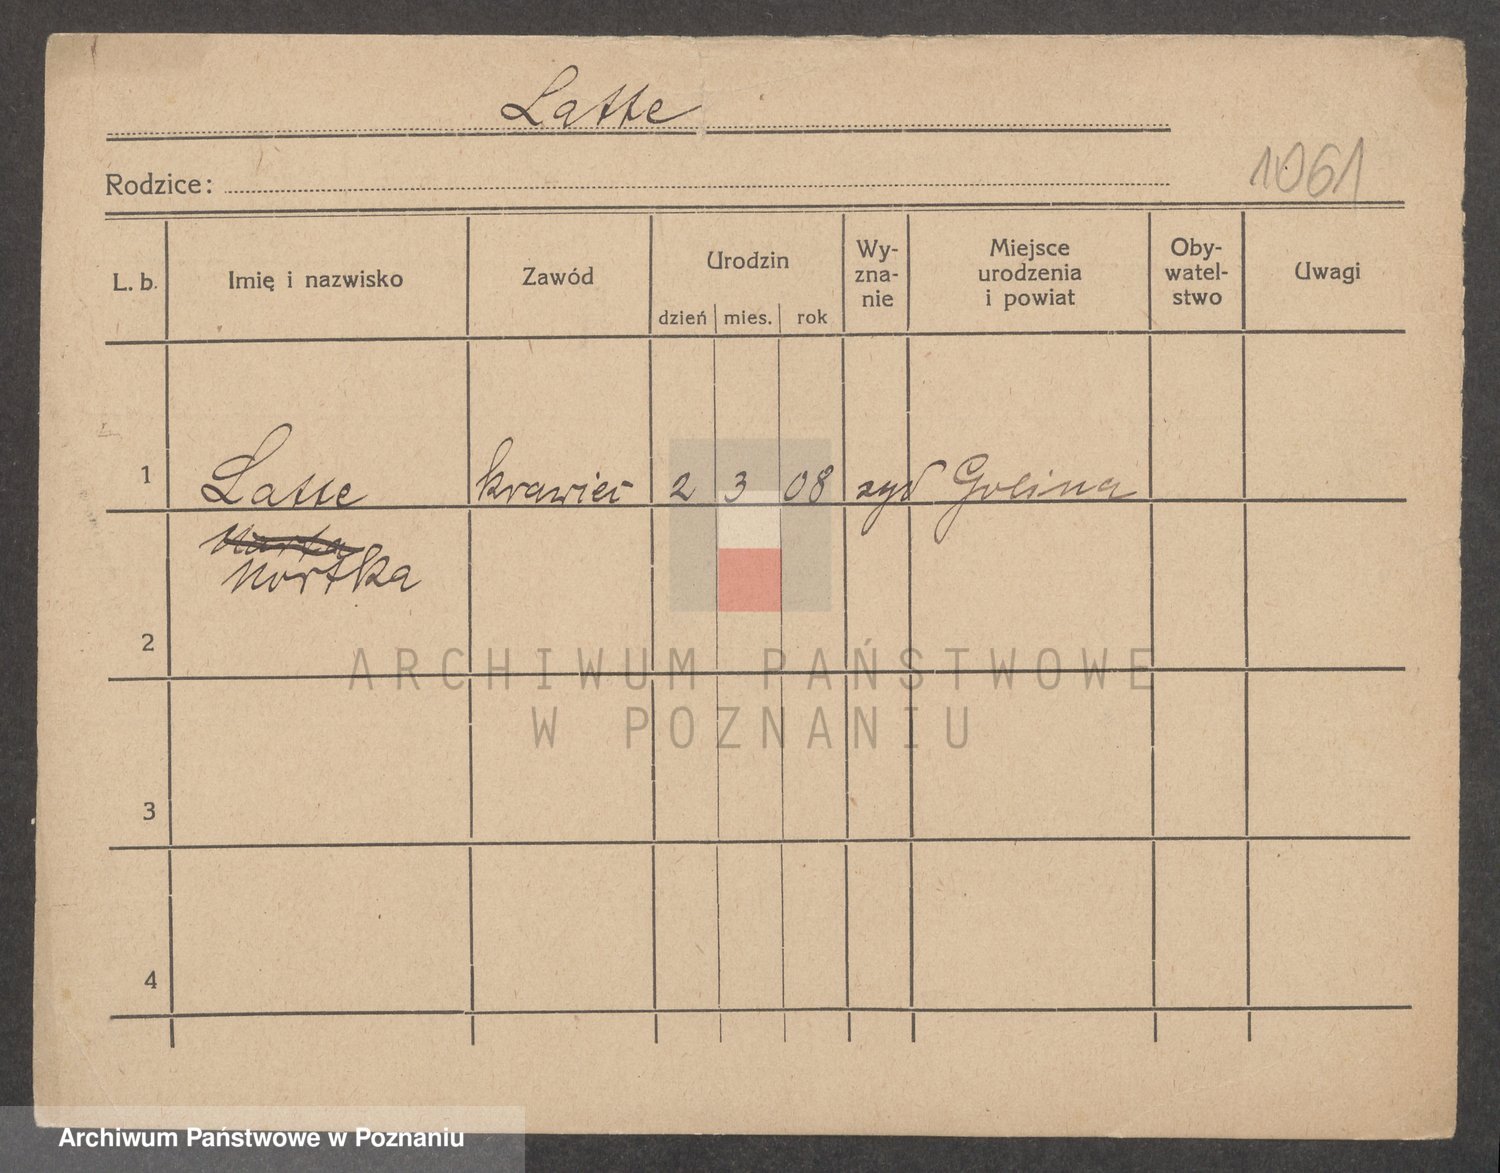 Latte
1061
Rodzice:
L. b. Imię i nazwisko Zawód Urodzin Wy- zna- nie Miejsce urodzenia i powiat Oby- watel- stwo Uwagi
dzień mies. rok
1 Latte krawiec 2 3 08 żyd Golina
Nortka
2
ARCHIWUM PAŃSTWOWE
W POZNANIU
3
4
Archiwum Państwowe w Poznaniu